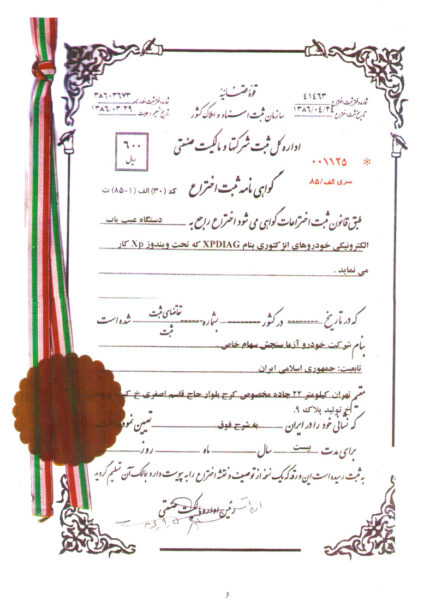 قوه قضائیه
سازمان ثبت اسناد و املاک کشور
شماره دفتر ثبت اختراع ۴۱۴۶۳
تاریخ ثبت اختراع ۱۳۸۶/۰۴/۲۴
۳۸۶۰۳۶۷۳
۱۳۸۶/۰۳/۲۹
اداره کل ثبت شرکتها و مالکیت صنعتی
۶۰۰
ریال
۰۰۱۱۲۵ *
سری الف/۸۵
گواهی نامه ثبت اختراع
کد (۳۰) الف (۱-۸۵) ث
طبق قانون ثبت اختراعات گواهی می شود اختراع راجع به دستگاه عیب یاب
الکترونیکی خودروهای انژکتوری بنام XPDIAG که تحت ویندوز Xp کار
می نماید .
که در تاریخ -------- در کشور -------- بشماره ------ تقاضای ثبت شده است
ثبت
بنام شرکت خودرو آزما سنجش سهام خاص
تابعیت: جمهوری اسلامی ایران
مقیم تهران کیلومتر ۲۲ جاده مخصوص کرج بلوار حاج قاسم اصغری خ
خ تولید پلاک ۹.
که نشانی خود را در ایران به شرح فوق تعیین نموده
برای مدت بیست سال ماه روز
به ثبت رسیده است این ورقه که یک نسخه از توصیف و نقشه اختراع را به پیوست دارد بمالک آن تسلیم گردید
رئیس اداره مالکیت صنعتی
۶